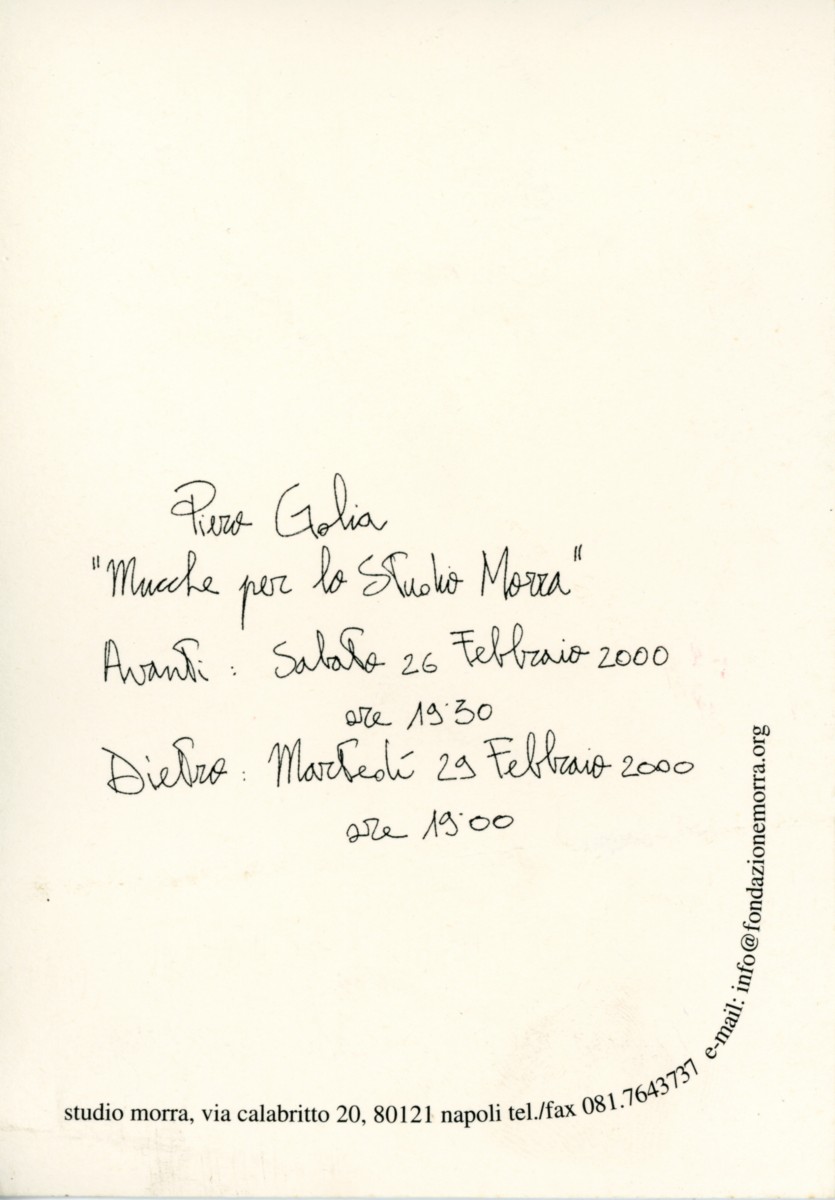 Piero Golia
"Mucche per lo Studio Morra"
Avanti: Sabato 26 Febbraio 2000
ore 19:30
Dietro: Martedí 29 Febbraio 2000
ore 19:00
studio morra, via calabritto 20, 80121 napoli tel./fax 081.7643737 e-mail: info@fondazionemorra.org